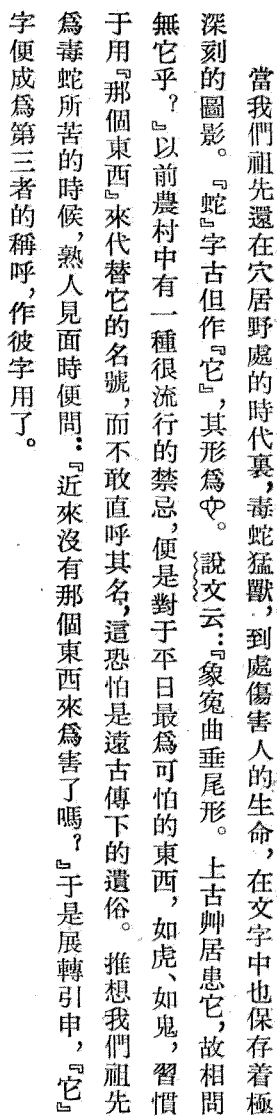 當我們祖先還在穴居野處的時代裏，毒蛇猛獸，到處傷害人的生命，在文字中也保存着極
深刻的圖影。『蛇』字古但作『它』，其形爲。說文云：『象寃曲垂尾形。上古艸居患它，故相問
無它乎？』以前農村中有一種很流行的禁忌，便是對于平日最爲可怕的東西，如虎、如鬼，習慣
于用『那個東西』來代替它的名號，而不敢直呼其名，這恐怕是遠古傳下的遺俗。推想我們祖先
爲毒蛇所苦的時候，熟人見面時便問：『近來沒有那個東西來爲害了嗎？』于是展轉引申，『它』
字便成爲第三者的稱呼，作彼字用了。